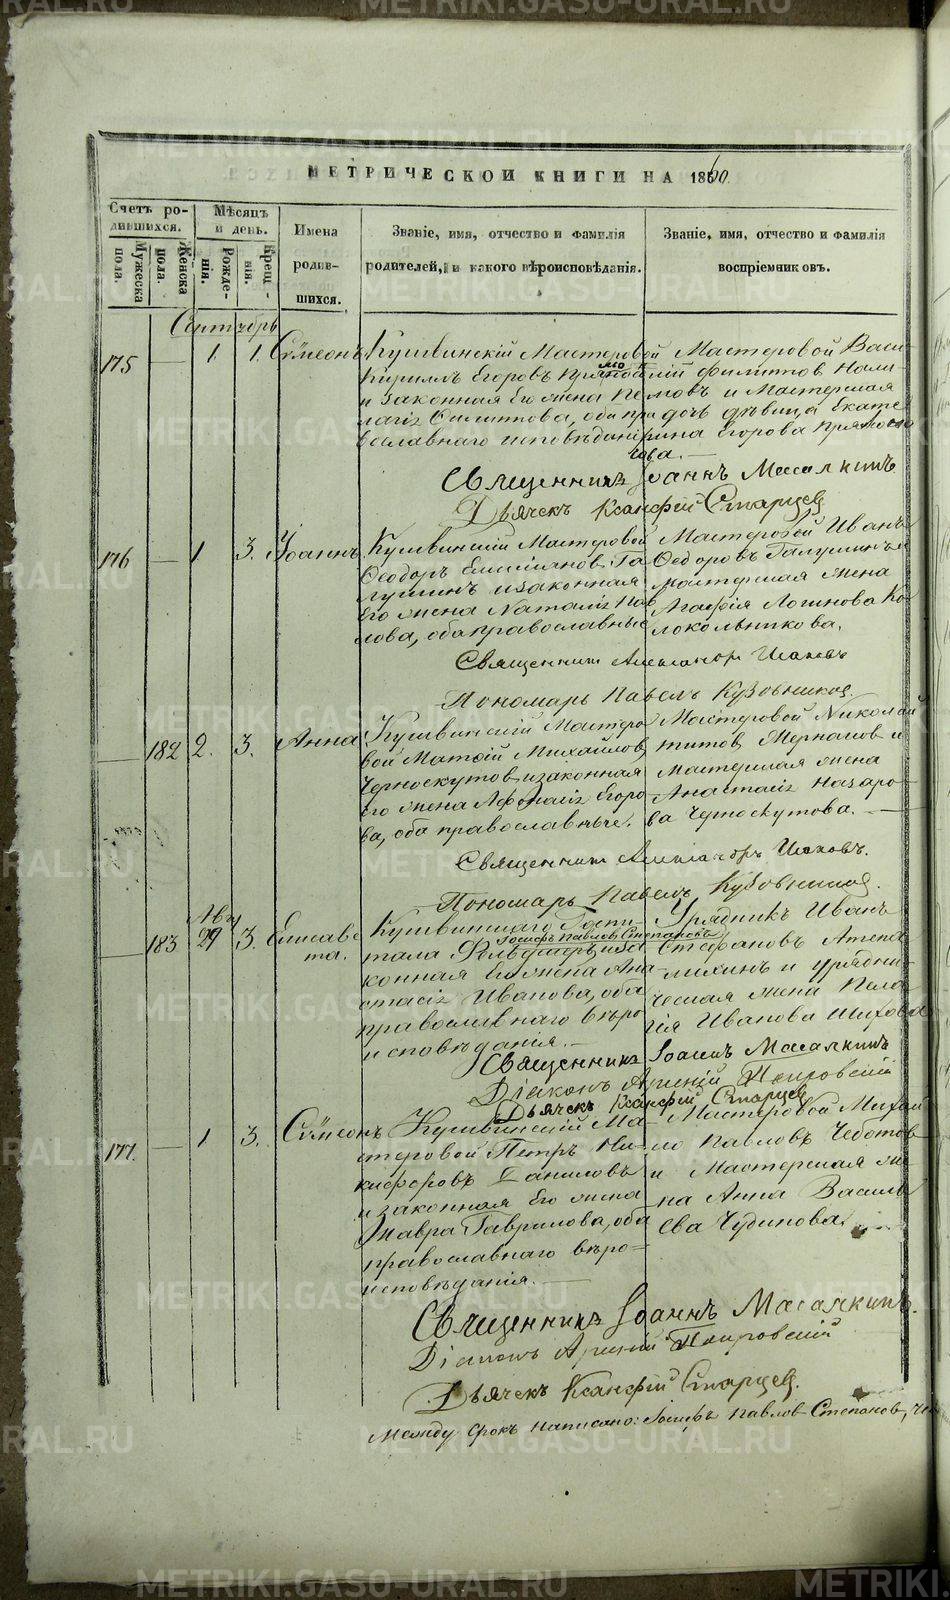 МЕТРИЧЕСКОЙ КНИГИ НА 1860.
Счетъ ро-
дившихся.
Мужеска
пола.
Женска
пола.
Мѣсяцъ
и день.
Рожде-
нія.
Крещ-
нія.
Имена
родив-
шихся.
Званіе, имя, отчество и фамилія
родителей, и какого вѣроисповѣданія.
Званіе, имя, отчество и фамилія
воспріемниковъ.
Сентябрь
175 — 1. 1. Сѵмеонъ
Кушвинскій Мастеровой
Кирилъ Егоровъ
и законная Его жена
Филиппова, оба пра
вославнаго исповѣданія
Мастеровой Васи-
лій Филипповъ
и Мастерская
дочь дѣвица Екате
рина Егорова
Священникъ Іоаннъ Масалкинъ
Дьячекъ Ксанфій Старцев
176 — 1 3. Іоаннъ
Кушвинскій Мастеровой
Ѳеодоръ Га
лушинъ и законная
Его жена Наталія Пав
лова, оба православные
Мастеровой Иванъ
Ѳедоровъ Галушинъ и
мастерская жена
Агафія Логинова Ко
локольникова.
Священник Александръ
Пономарь Павелъ Кузовников.
— 182 2. 3. Анна
Кушвинскій Мастеро
вой Матѳій Михайлов
Черноскутов и законная
его жена Афанасія Егоро
ва, оба православные.
Мастеровой Николай
Титов и
мастерская жена
Анастасія Назаро
ва Черноскутова. —
Священник Александръ
Пономарь Павелъ Кузовников.
— 183 Авг. 29 3. Елисаве
та.
Кушвинскаго Гости-
Іосифъ Павлов Степановъ
тала Фельдшеръ, и за
конная Его жена Ана
стасія Иванова, оба
православнаго вѣро
исповѣданія. —
Урядникъ Иванъ
Стефановъ
и урядни
ческая жена Пела
гія Иванова
Священникъ Іоаннъ Масалкинъ
Діаконъ Арсеній
Дьячекъ Ксанфій Старцев
177. — 1 3. Сѵмеонъ
Кушвинскій Ма-
стеровой Петръ Ни-
кифоровъ Даниловъ
и законная Его жена
Мавра Гаврилова, оба
православнаго вѣро-
исповѣданія. —
Мастеровой Михаи
ло Павловъ Чеботов
и Мастерская же
на Анна Василь
ева Чудинова.
Священникъ Іоаннъ Масалкинъ.
Діаконъ Арсеній
Дьячекъ Ксанфій Старцев.
Между срокъ написано: Іосифъ Павлов Степанов,
METRIKI.GASO-URAL.RU